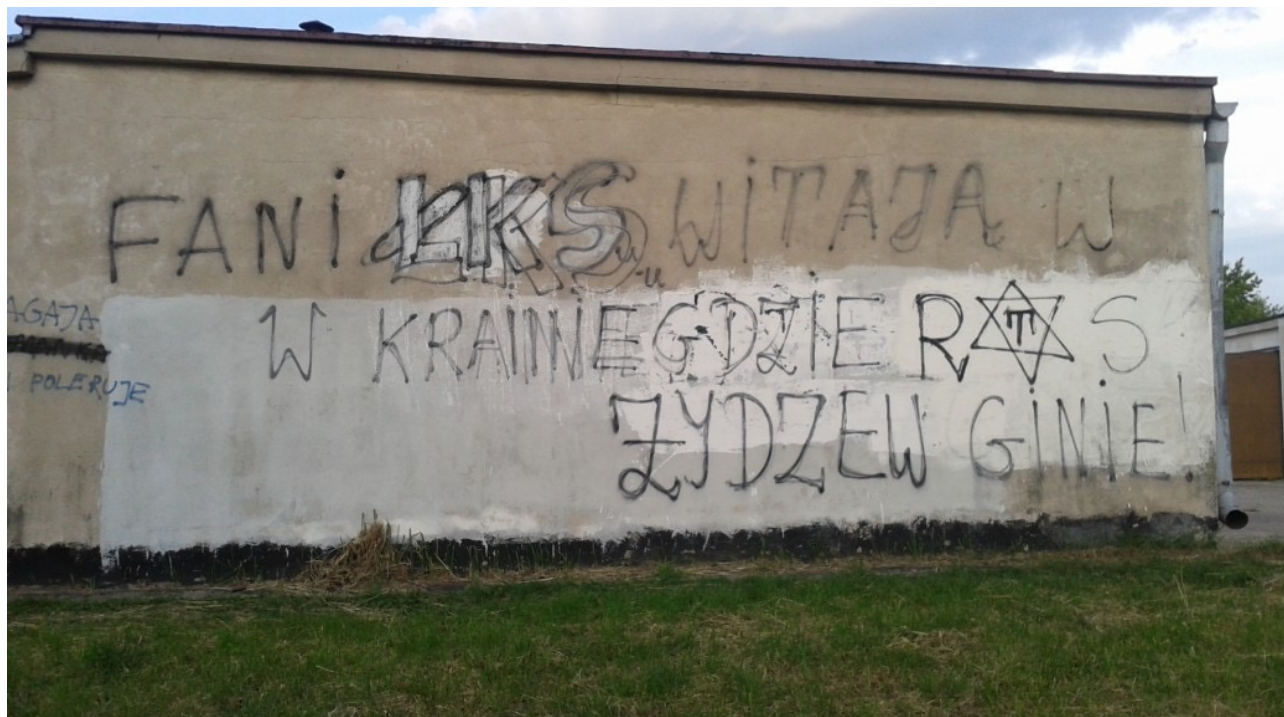 FANI ŁKS WITAJĄ W
W KRAINIE GDZIE R S
ŻYDZEW GINIE!
AGAJA
POLERUJE